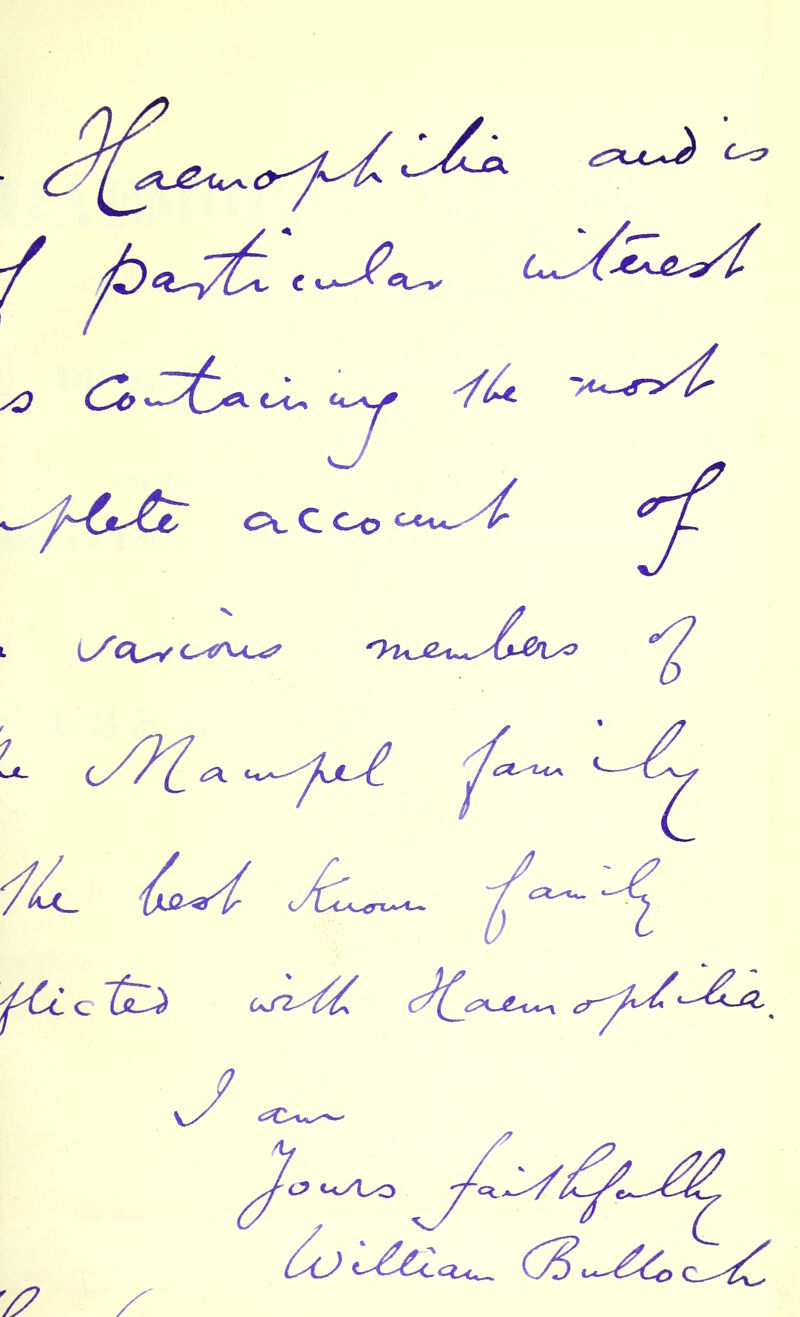 Haemophilia and is
f particular interest
s containing the most
plete account of
various members of
he Mampel family
the best known family
flicted with Haemophilia.
I am
Yours faithfully
William Bulloch